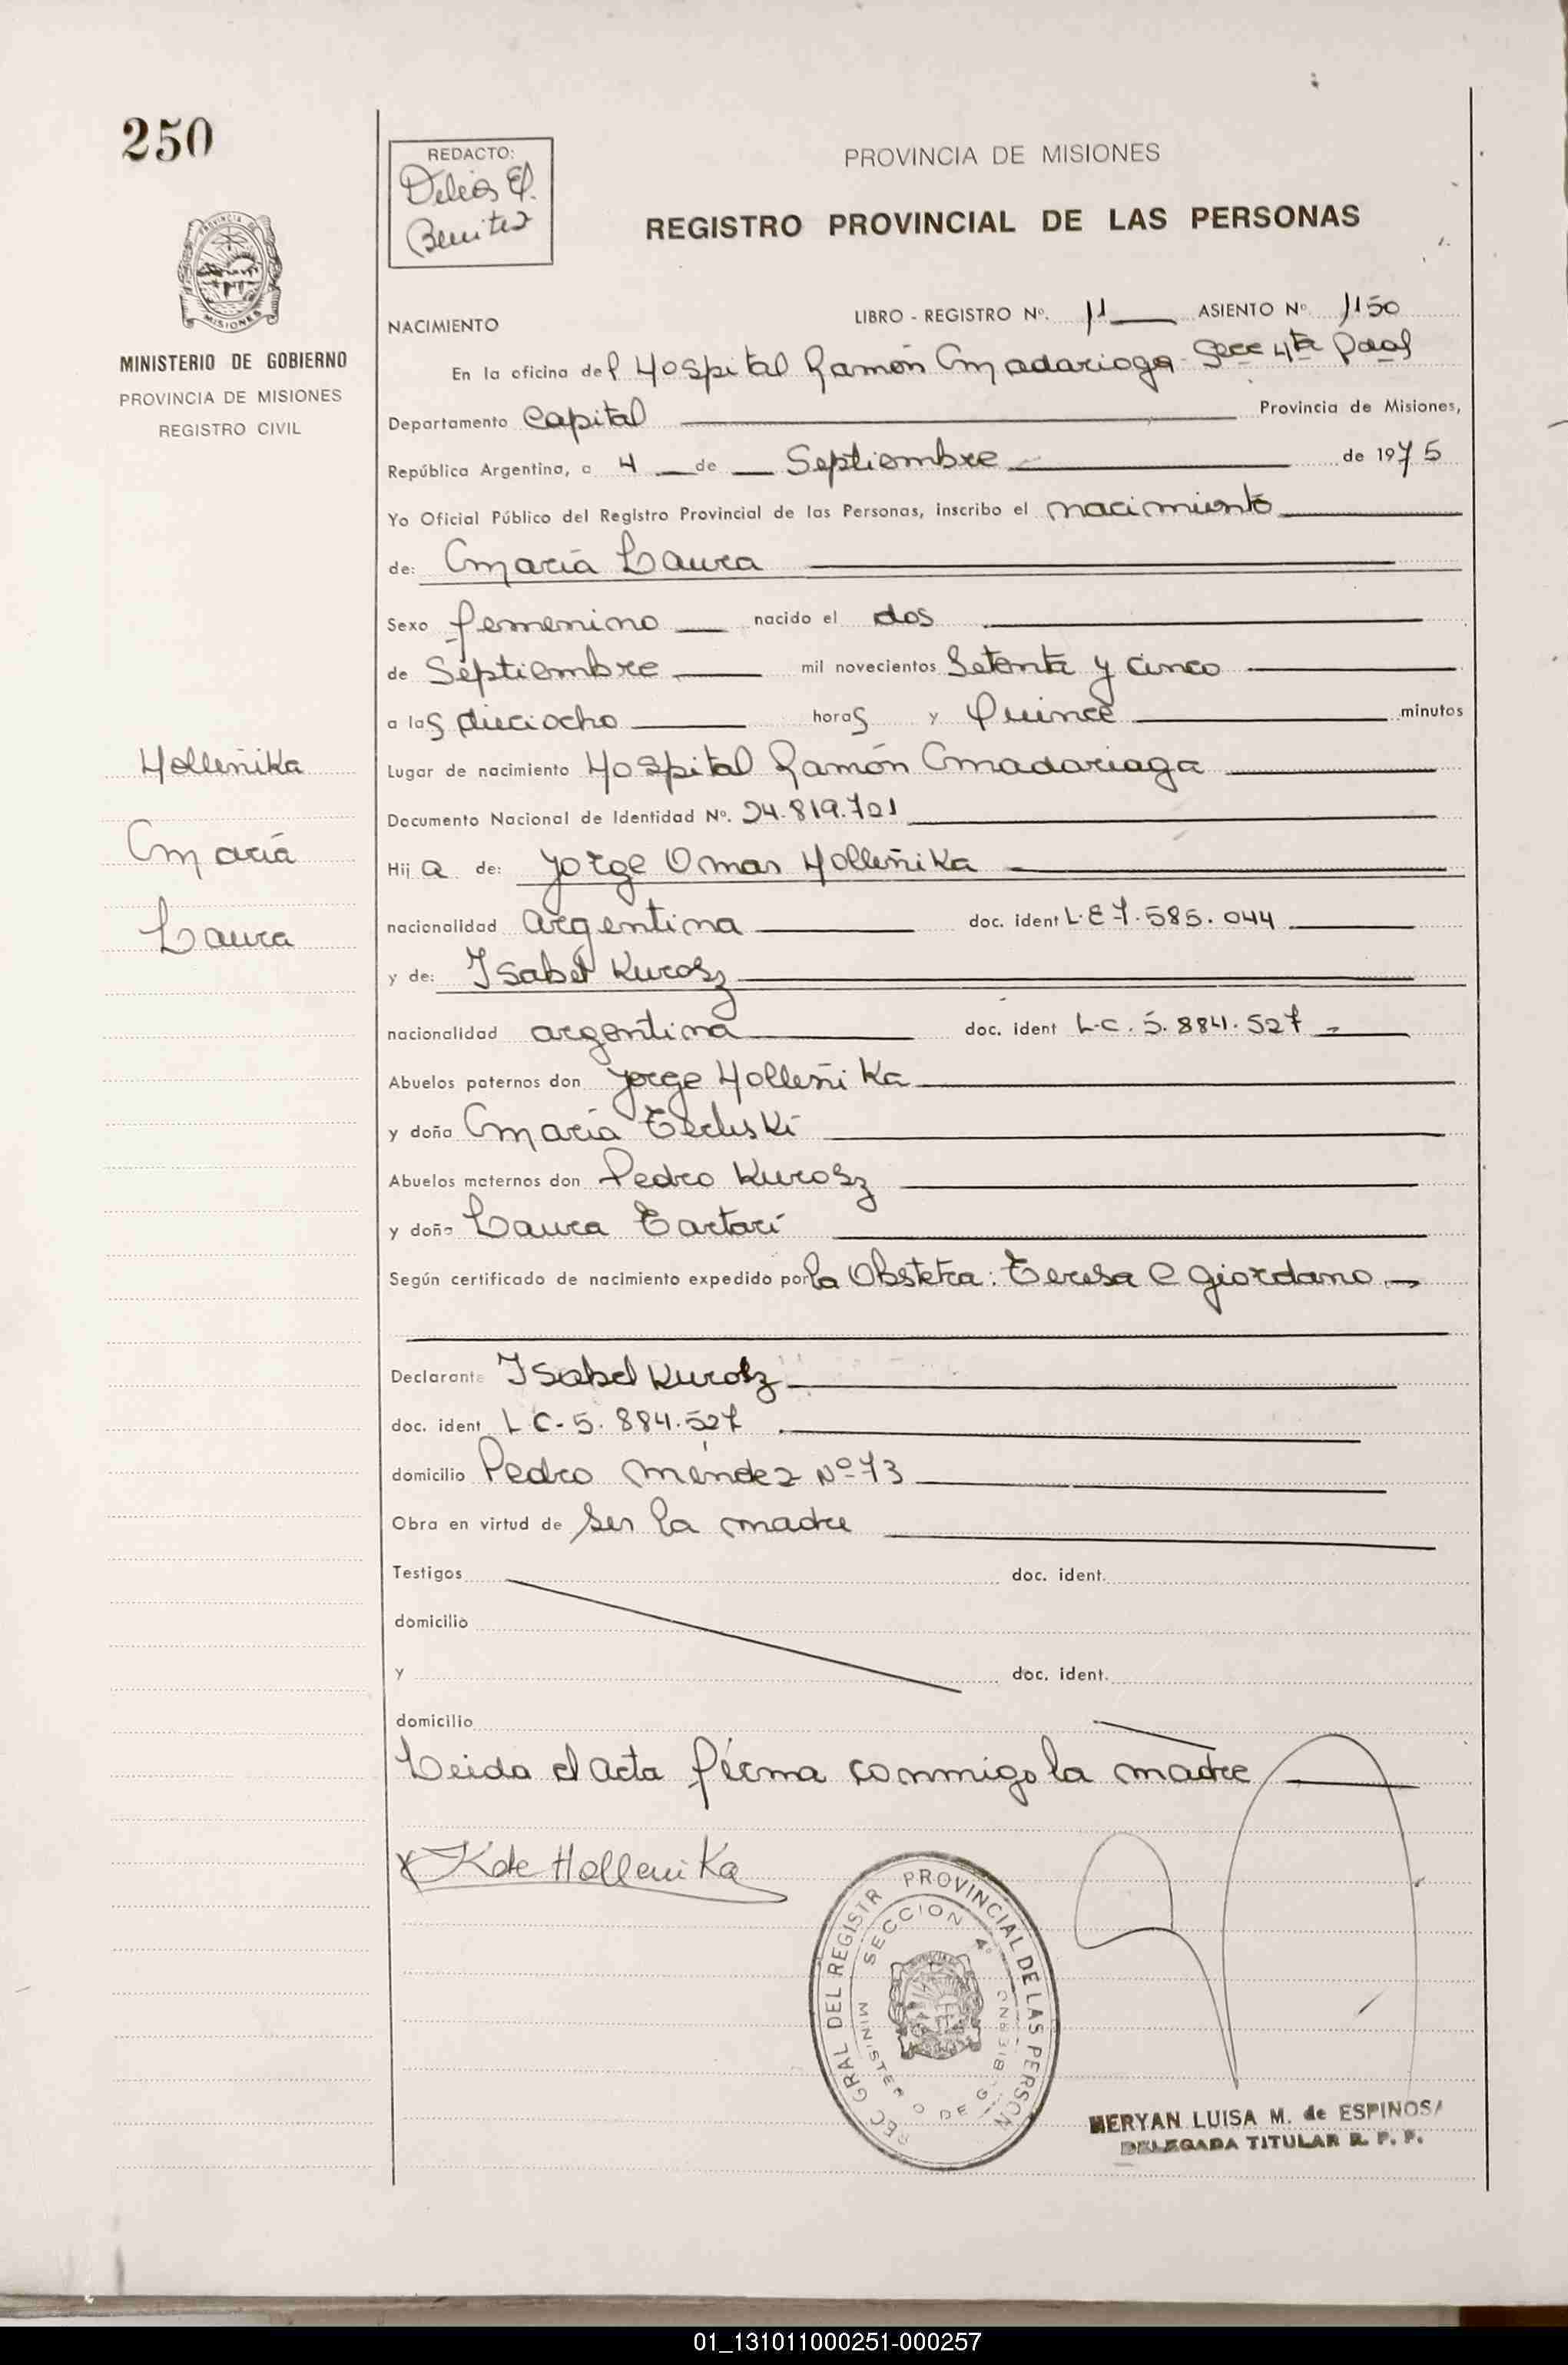 250
REDACTO:
Delia E.
Benitez
PROVINCIA DE MISIONES
REGISTRO PROVINCIAL DE LAS PERSONAS
MINISTERIO DE GOBIERNO
PROVINCIA DE MISIONES
REGISTRO CIVIL
NACIMIENTO
LIBRO - REGISTRO Nº. 11 ASIENTO Nº 1150
En la oficina del Hospital Ramón Madariaga - Secc 4ta Pdas
Departamento Capital Provincia de Misiones,
República Argentina, a 4 de Septiembre de 1975
Yo Oficial Público del Registro Provincial de las Personas, inscribo el nacimiento
de: María Laura
Sexo femenino nacido el dos
de Septiembre mil novecientos Setenta y cinco
a las dieciocho horas y Quince minutos
Holleñika
María
Laura
Lugar de nacimiento Hospital Ramón Madariaga
Documento Nacional de Identidad Nº. 24.819.701
Hija de: Jorge Omar Holleñika
nacionalidad argentina doc. ident L.E 7.585.044
y de: Isabel Kurosz
nacionalidad argentina doc. ident L.C. 5.884.527
Abuelos paternos don Jorge Holleñika
y doña María
Abuelos maternos don Pedro Kurosz
y doña Laura Tartari
Según certificado de nacimiento expedido por la Obstetra: Teresa C Giordano
Declarante Isabel Kurosz
doc. ident L C - 5. 884.527
domicilio Pedro Méndez Nº 73
Obra en virtud de ser la madre
Testigos doc. ident.
domicilio
y doc. ident.
domicilio
Leida el acta firma conmigo la madre
K de Holleñika
REC GRAL DEL REGISTR PROVINCIAL DE LAS PERSON
SECCION 4º
MINISTERIO DE GOBIERNO
MERYAN LUISA M. de ESPINOSA
DELEGADA TITULAR R. P. P.
01_131011000251-000257